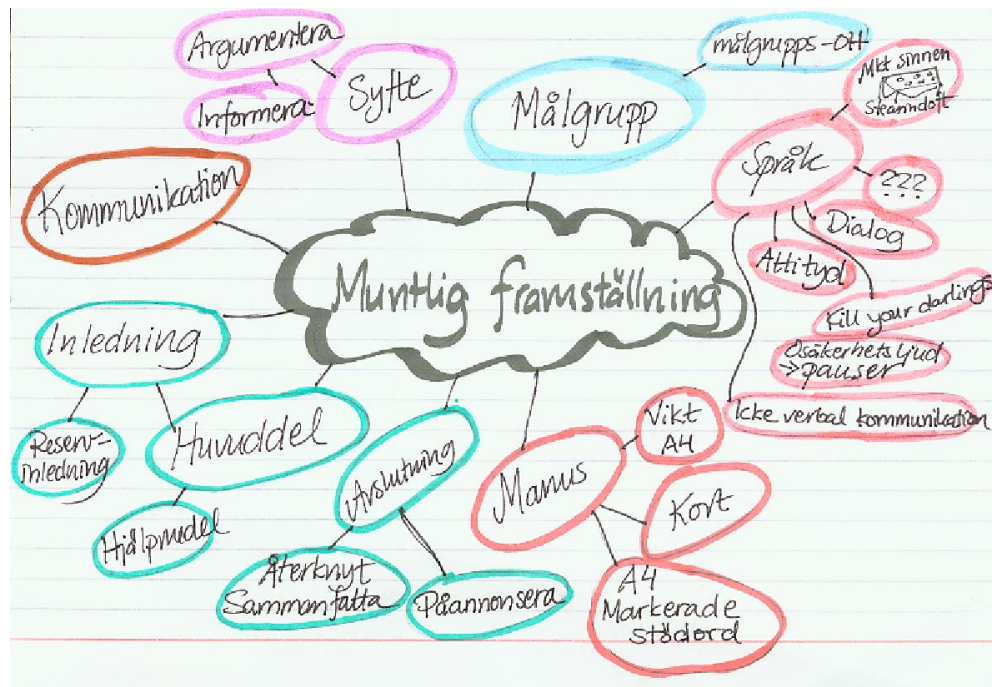 Muntlig framställning
Syfte
Argumentera
Informera
Målgrupp
målgrupps-OH
Språk
Mkt sinnen
Stearindoft
???
Dialog
Attityd
Kill your darlings
Osäkerhetsljud
→pauser
Icke verbal kommunikation
Kommunikation
Inledning
Reserv-
inledning
Huvuddel
Hjälpmedel
Avslutning
Återknyt
Sammanfatta
Påannonsera
Manus
Vikt
A4
Kort
A4
Markerade
stödord